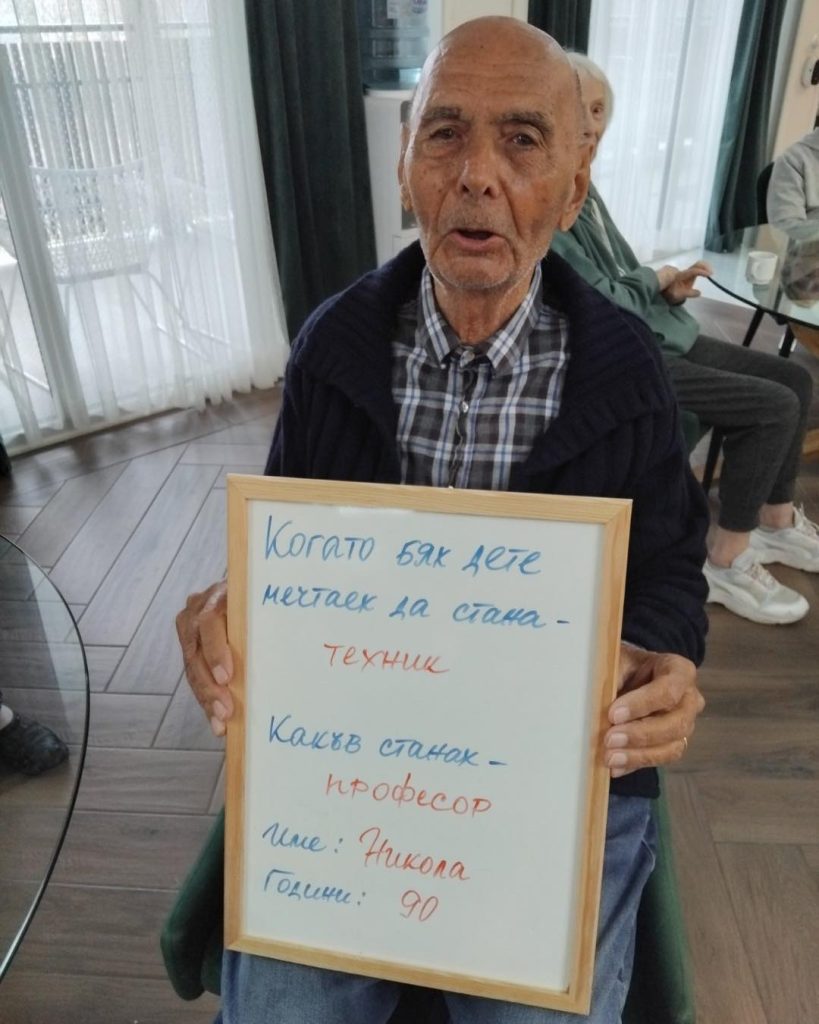 Когато бях дете
мечтаех да стана -
техник
Какъв станах -
професор
Име: Никола
Години: 90